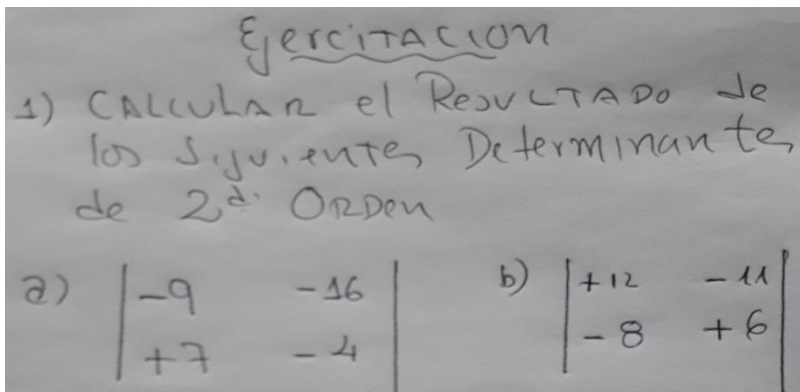 Ejercitacion
1) CALCULAR el ResULTADO de
los Siguientes Determinantes
de 2d. ORDen
a) | -9 -16 | b) | +12 -11 |
| +7 -4 | | -8 +6 |